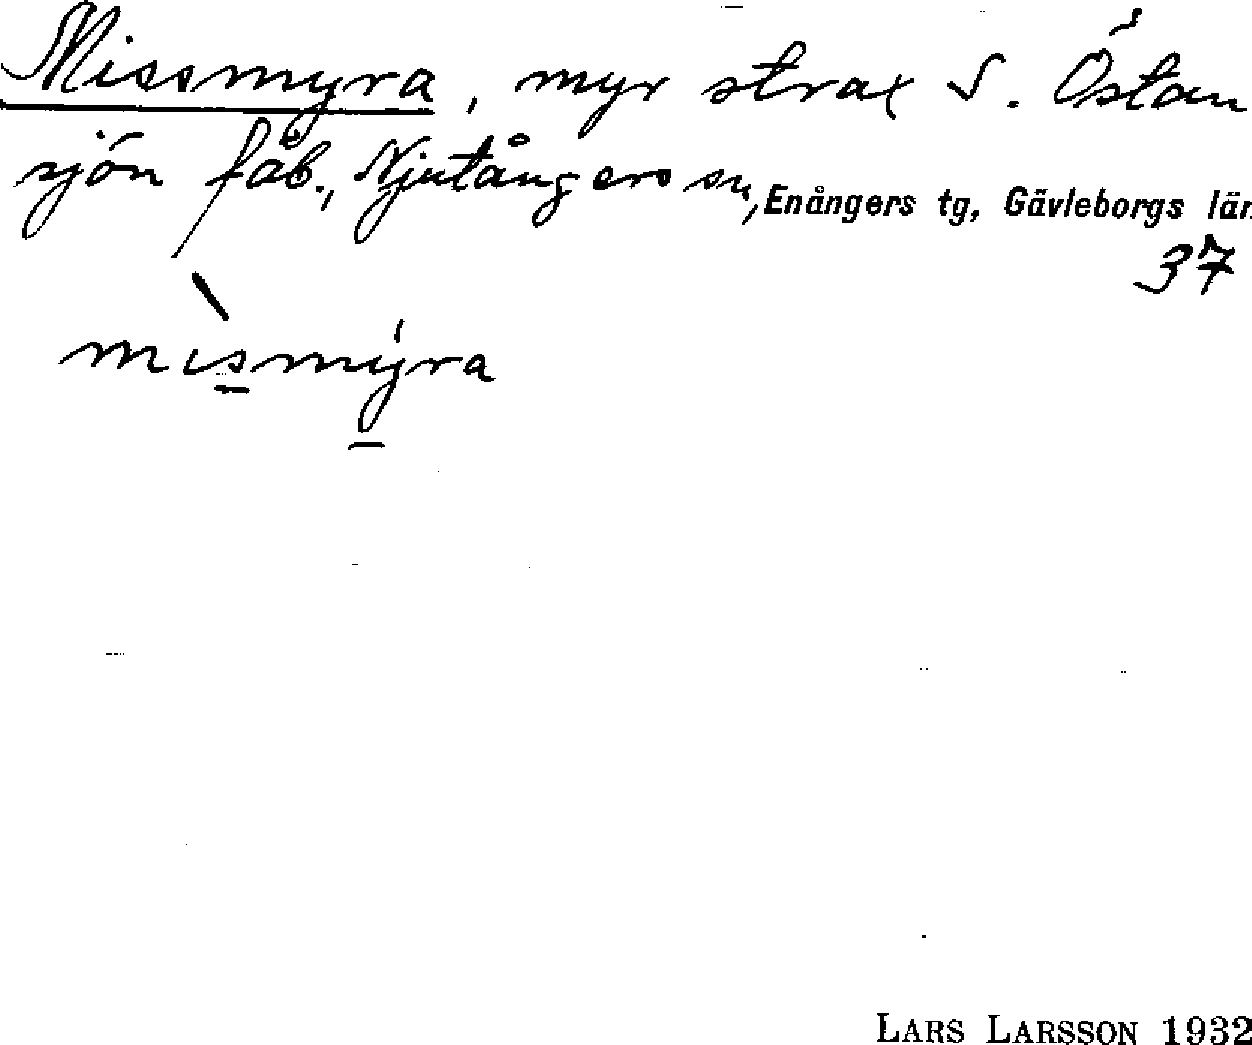 Missmyra, myr strax S. Östan
sjön fäb., Njutångers sn, Enångers tg, Gävleborgs län
37
mìsmýra
LARS LARSSON 1932